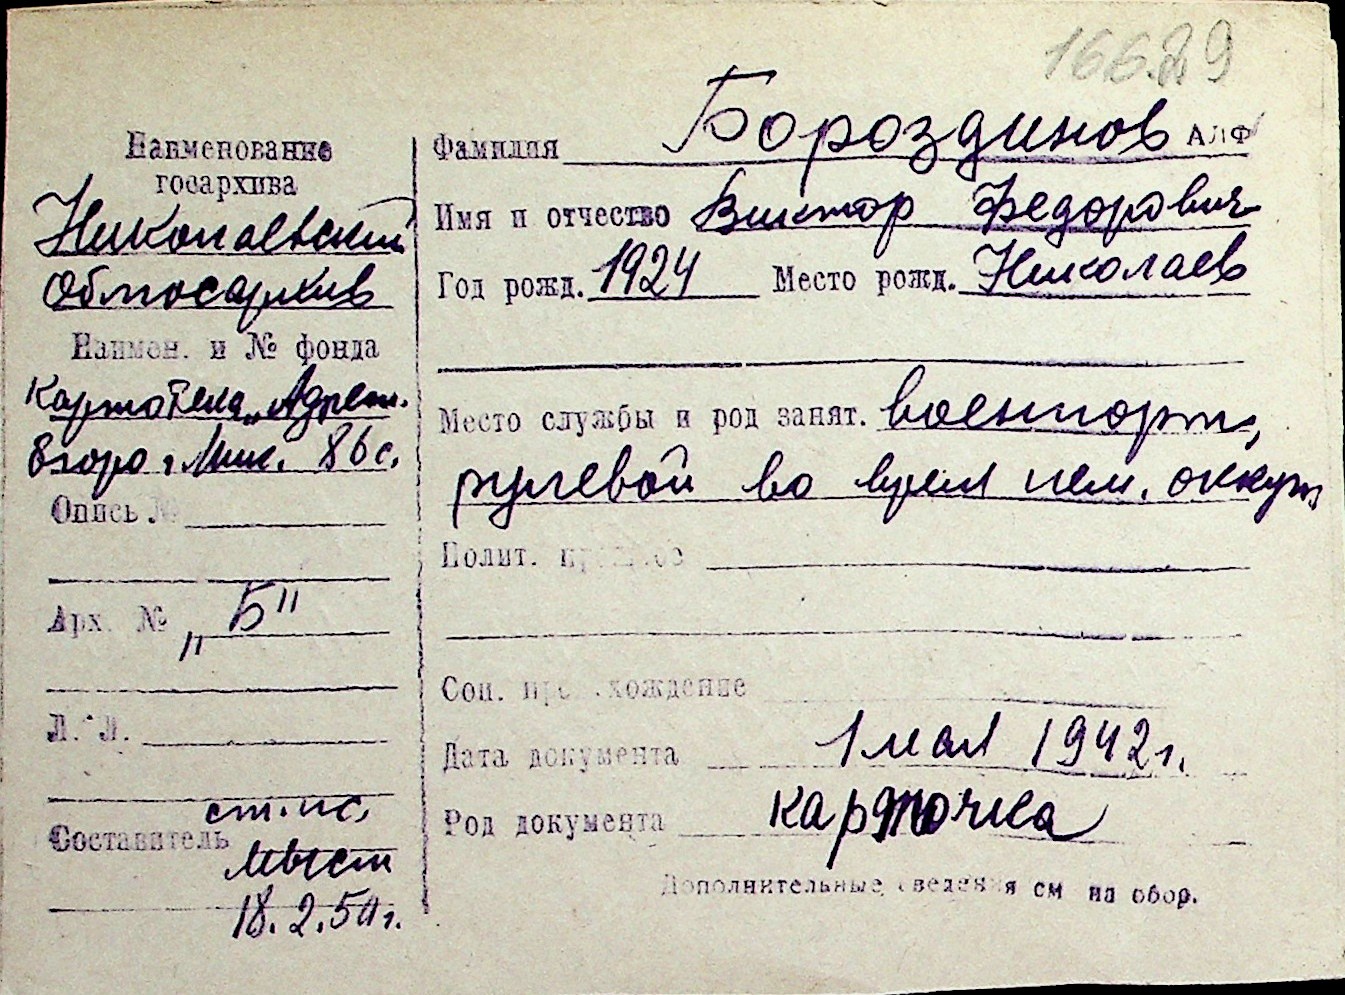 166.29
Наименование
госархива
Николаевский
Облгосархив
Наимен. и № фонда
Картотека „Адресн.
бюро г. Ник. 86 с.
Опись №
Арх. № „Б"
Л. Л.
Составитель ст. нс.
18.2.50 г.
Фамилия Бороздинов АЛФ
Имя и отчество Виктор Федорович
Год рожд. 1924 Место рожд. Николаев
Место службы и род занят. военпорт,
рулевой во время нем. оккуп.
Полит. прошлое
Соц. происхождение
Дата документа 1 мая 1942 г.
Род документа карточка
Дополнительные сведения см на обор.